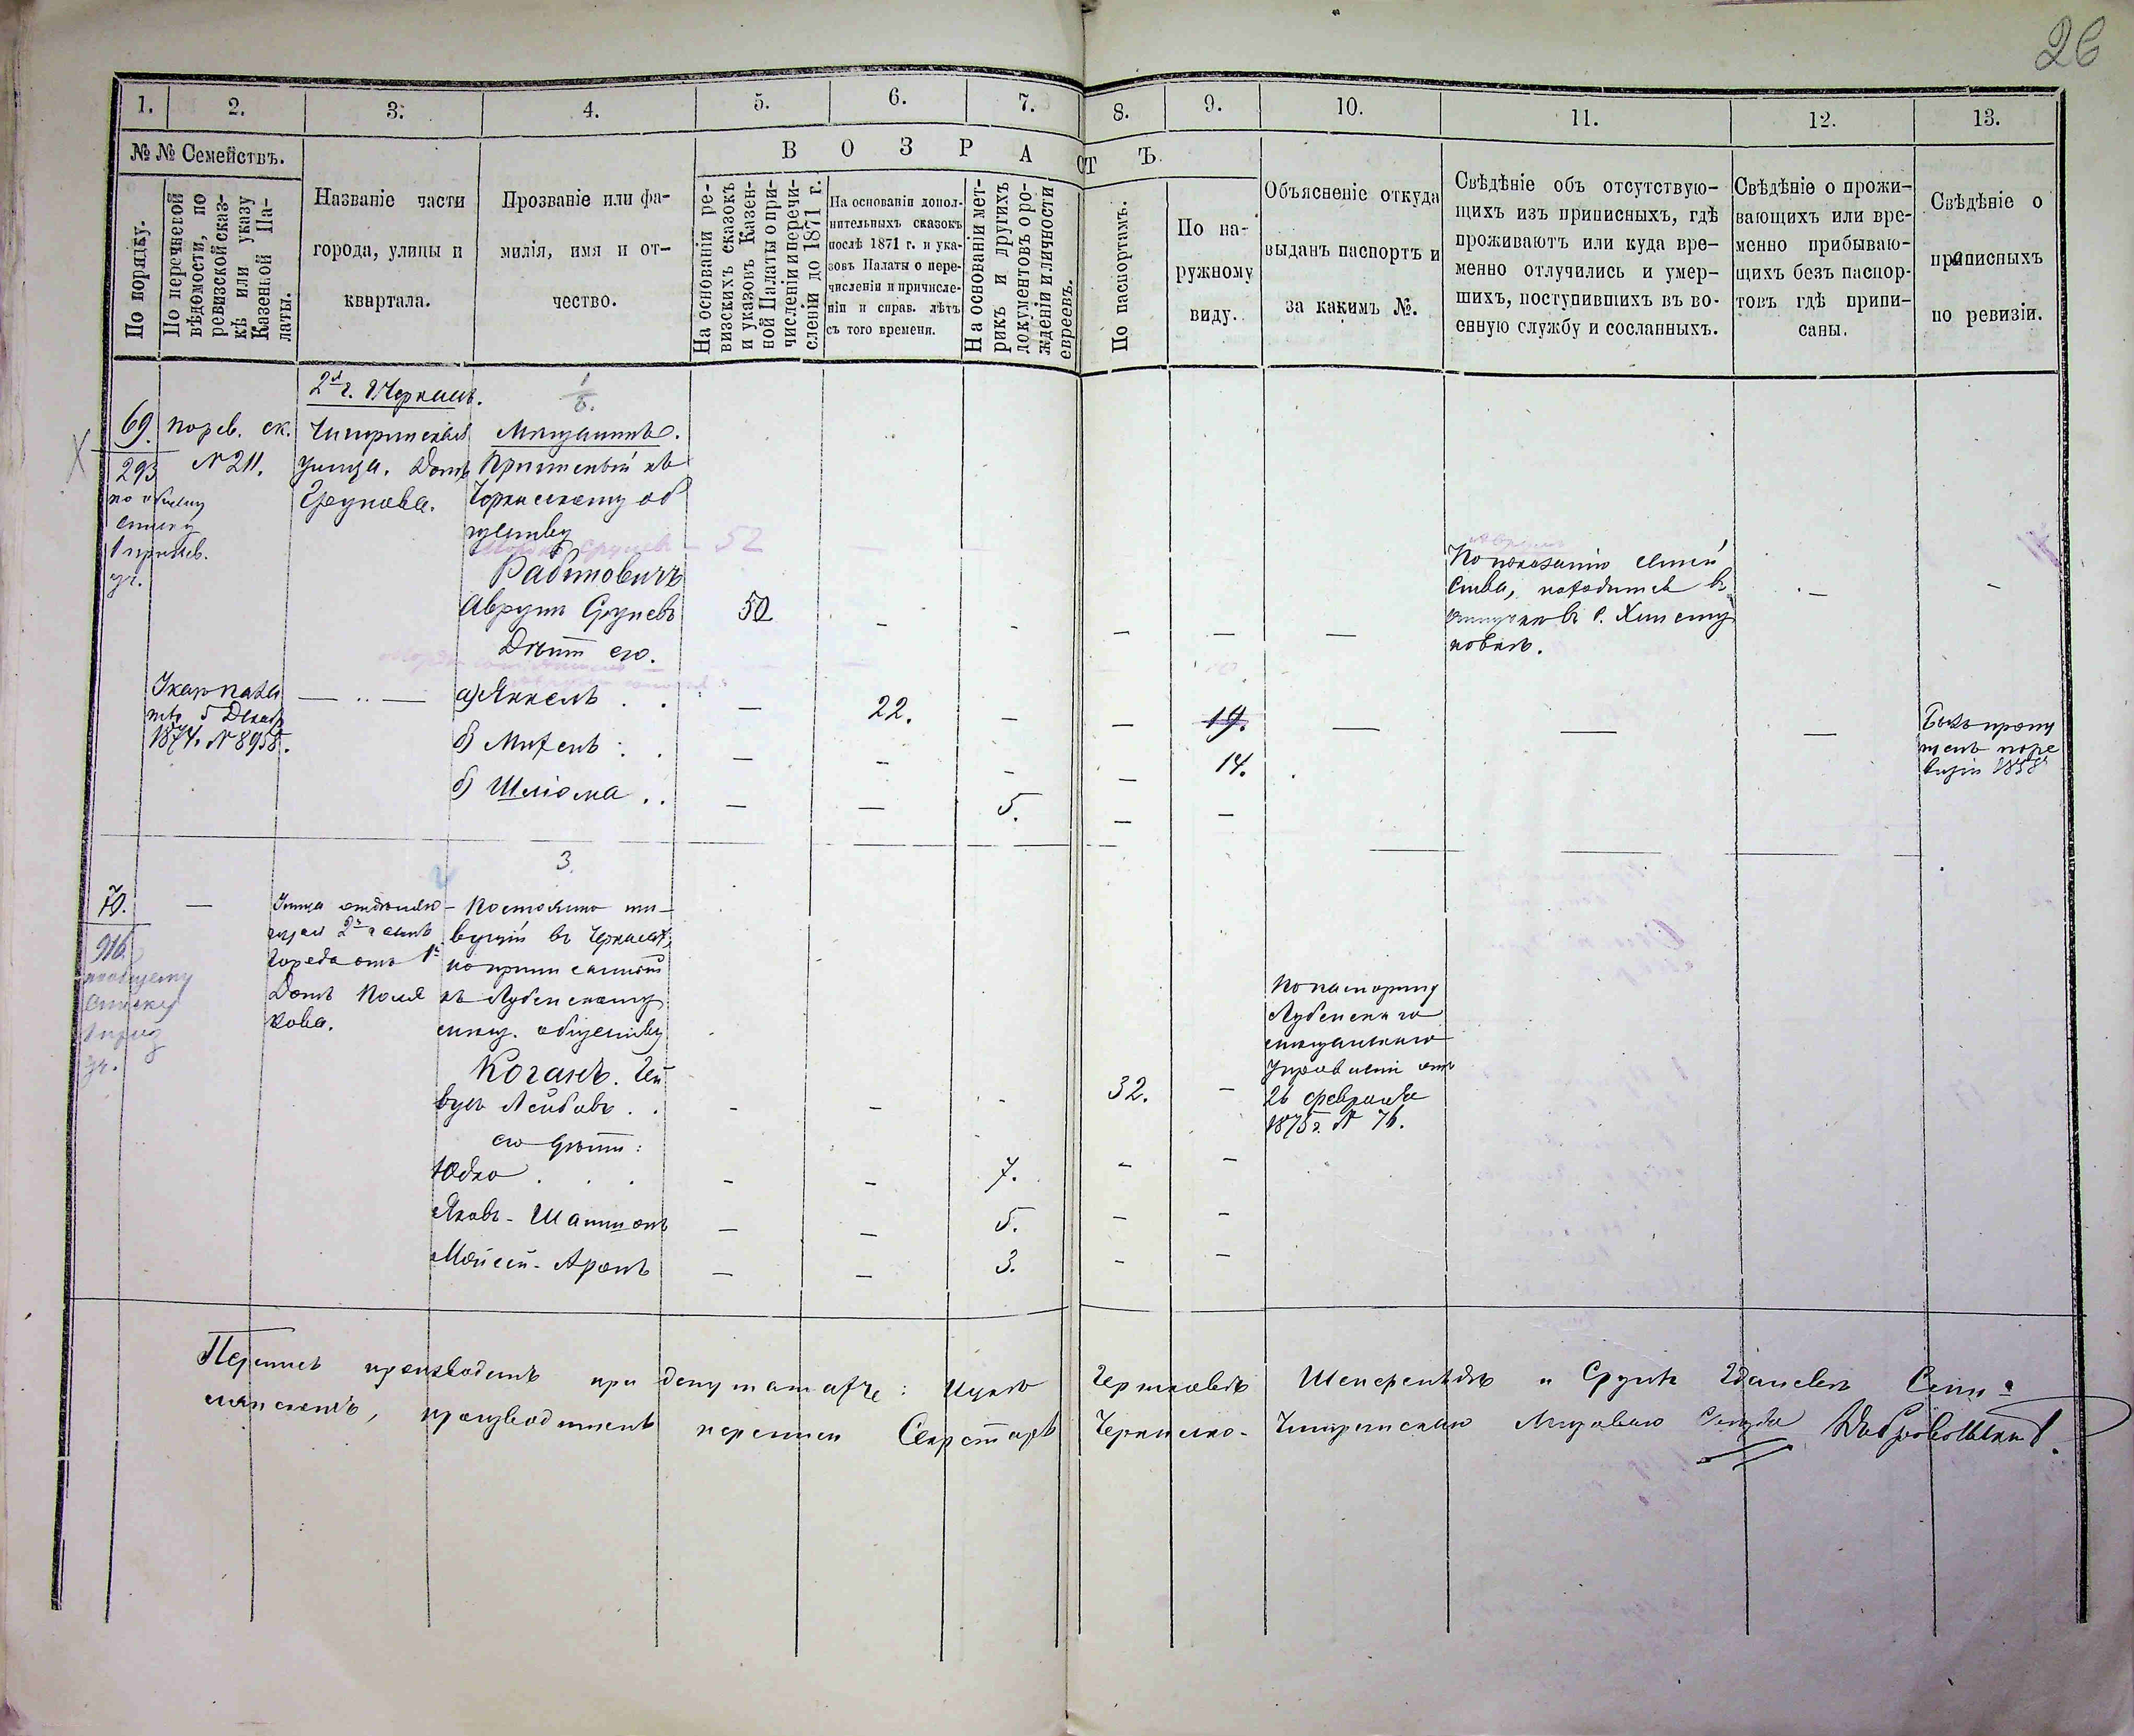 26
1.
2.
3.
4.
5.
6.
7.
8.
9.
10.
11.
12.
13.
№ № Семействъ.
В О З Р А СТ Ъ.
По порядку.
По перечневой
вѣдомости, по
ревизской сказ-
кѣ или указу
Казенной Па-
латы.
Названіе части
города, улицы и
квартала.
Прозваніе или фа-
милія, имя и от-
чество.
На основаніи ре-
визскихъ сказокъ
и указовъ Казен-
ной Палаты о при-
численіи и перечи-
сленіи до 1871 г.
На основаніи допол-
нительныхъ сказокъ
послѣ 1871 г. и ука-
зовъ Палаты о пере-
численіи и причисле-
ніи и справ. лѣтъ
съ того времени.
На основаніи мет-
рикъ и другихъ
документовъ о ро-
жденіи и личности
евреевъ.
По паспортамъ.
По на-
ружному
виду.
Объясненіе откуда
выданъ паспортъ и
за какимъ №.
Свѣдѣніе объ отсутствую-
щихъ изъ приписныхъ, гдѣ
проживаютъ или куда вре-
менно отлучились и умер-
шихъ, поступившихъ въ во-
енную службу и сосланныхъ.
Свѣдѣніе о прожи-
вающихъ или вре-
менно прибываю-
щихъ безъ паспор-
товъ гдѣ припи-
саны.
Свѣдѣніе о
приписныхъ
по ревизіи.
69.
293
по общему
списку
1 призыв.
уч.
по рев. ск.
№ 211.
2я ч. г. Черкасъ.
Чигиринская
улица. Домъ
Мѣщанинъ.
Приписный къ
Черкасскому об
ществу
52
Рабиновичъ
Аврумъ Сруневъ
50
Дѣти его.
По показанію семей
ства, находится въ
Указъ палаты
5 Декабр
1874. № 8958.
а) Янкель
22.
19.
б) Михель
14.
в) Шліома
5.
Былъ пропу
щенъ по ре
визіи 1858
3
70.
916
по общему
списку
1 приз
уч.
Улица отдѣляю-
щая 2ю часть
города отъ 1й
Домъ Поля
кова.
Постоянно жи-
вущій въ Черкасах,
но приписанный
къ Лубенскому
мѣщ. обществу
Коганъ. Гей
вухъ Лейбовъ
32.
По паспорту
Лубенскаго
мѣщанскаго
Управленія отъ
26 февраля
1875 г. № 76.
его дѣти:
Юдко
7.
Яковъ-Шапшонъ
5.
Мойсей-Аронъ
3.
Перепись производилъ при депутатахъ:
производившій перепись Секретарь Черкасско-Чигиринскаго Мироваго Съѣзда